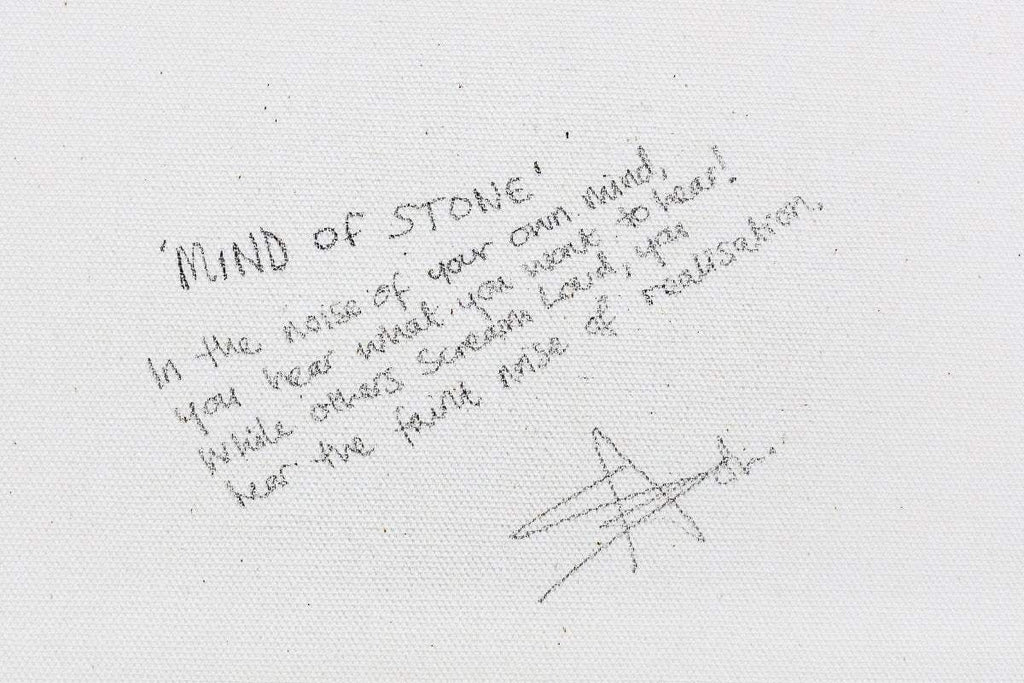 'MIND OF STONE'
In the noise of your own mind,
you hear what you want to hear!
While others scream loud, you
hear the faint noise of realisation.